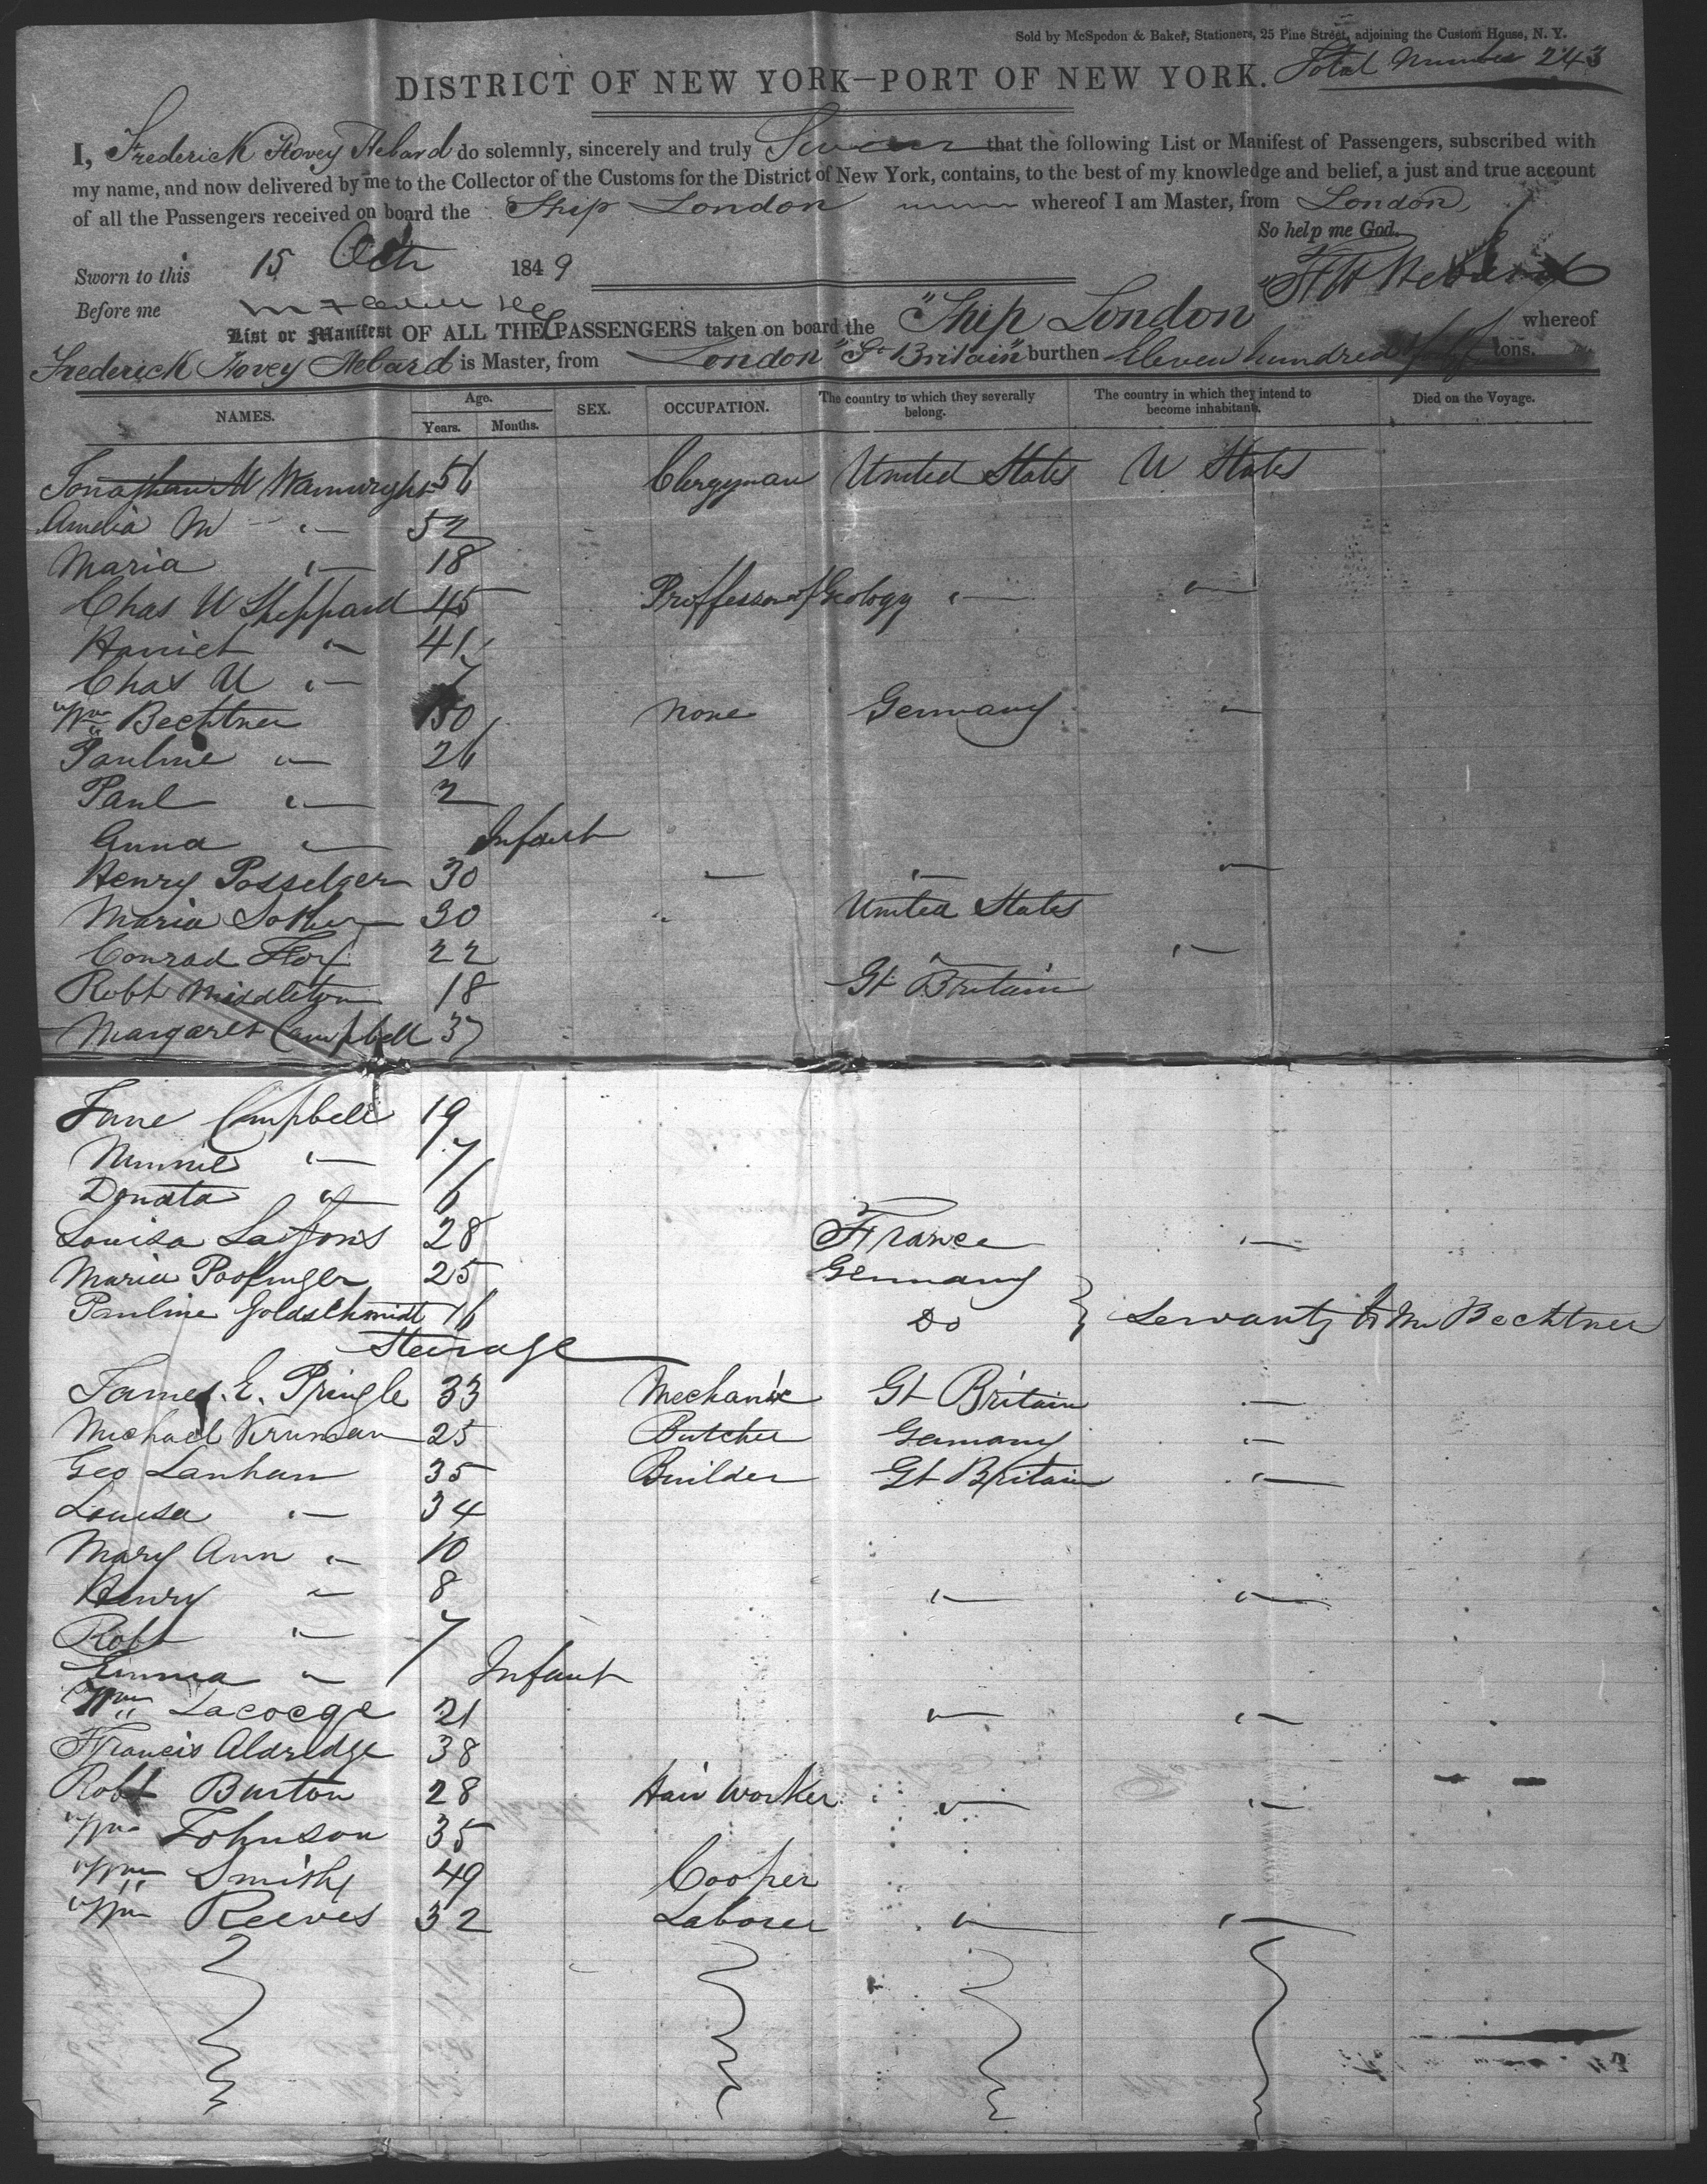 Sold by McSpedon & Baker, Stationers, 25 Pine Street, adjoining the Custom House, N. Y.
Total Number 243
DISTRICT OF NEW YORK—PORT OF NEW YORK.
I, Frederick Hovey Hebard do solemnly, sincerely and truly Swear that the following List or Manifest of Passengers, subscribed with
my name, and now delivered by me to the Collector of the Customs for the District of New York, contains, to the best of my knowledge and belief, a just and true account
of all the Passengers received on board the Ship London whereof I am Master, from London
So help me God.
Sworn to this 15 Octr 1849
F H Hebard
Before me
List or Manifest OF ALL THE PASSENGERS taken on board the "Ship London" whereof
Frederick Hovey Hebard is Master, from London "Gt Britain" burthen Eleven hundred tons.
NAMES. Age. Years. Months. SEX. OCCUPATION. The country to which they severally belong. The country in which they intend to become inhabitants. Died on the Voyage.
Jonathan M Wainwright 56 Clergyman United States U States
Amelia M " 52
Maria " 18
Chas U Sheppard 45 Proffessor of Geology " "
Harriet " 41
Chas U " 7
Wm Bechtner 50 None Germany "
Pauline " 26
Paul " 2
Anna " Infant
Henry Posselger 30 " " "
Maria 30 " United States
Conrad 22 " "
Robt Middleton 18 Gt Britain
Margaret Campbell 37
Jane Campbell 19
Minnie " 7
Donata " 6
Louisa 28 France "
Maria 25 Germany
Pauline Goldschmidt 16 Do } Servants to Mr Bechtner
Steerage
James. E. Pringle 33 Mechanic Gt Britain "
Michael 25 Butcher Germany "
Geo Lanham 35 Builder Gt Britain "
Louisa " 34
Mary Ann " 10
Henry " 8 " "
Robt " 7
Emma " Infant
Wm 21 " "
Francis Aldredge 38
Robt Burton 28 Hair Worker " "
Wm Johnson 35
Wm Smith 49 Cooper
Wm Reeves 32 Laborer " "